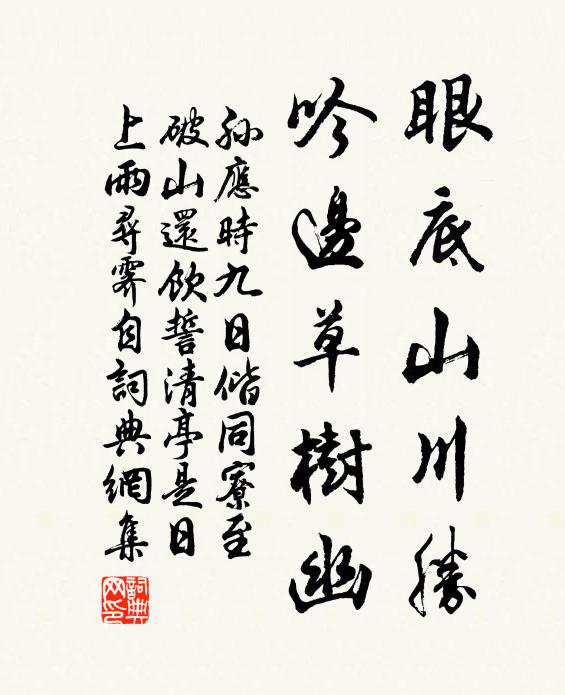 眼底山川勝
吟邊草樹幽
孫應時九日偕同寮至
破山還飲誓清亭是日
上雨尋霽自詞典網集
詞典網印